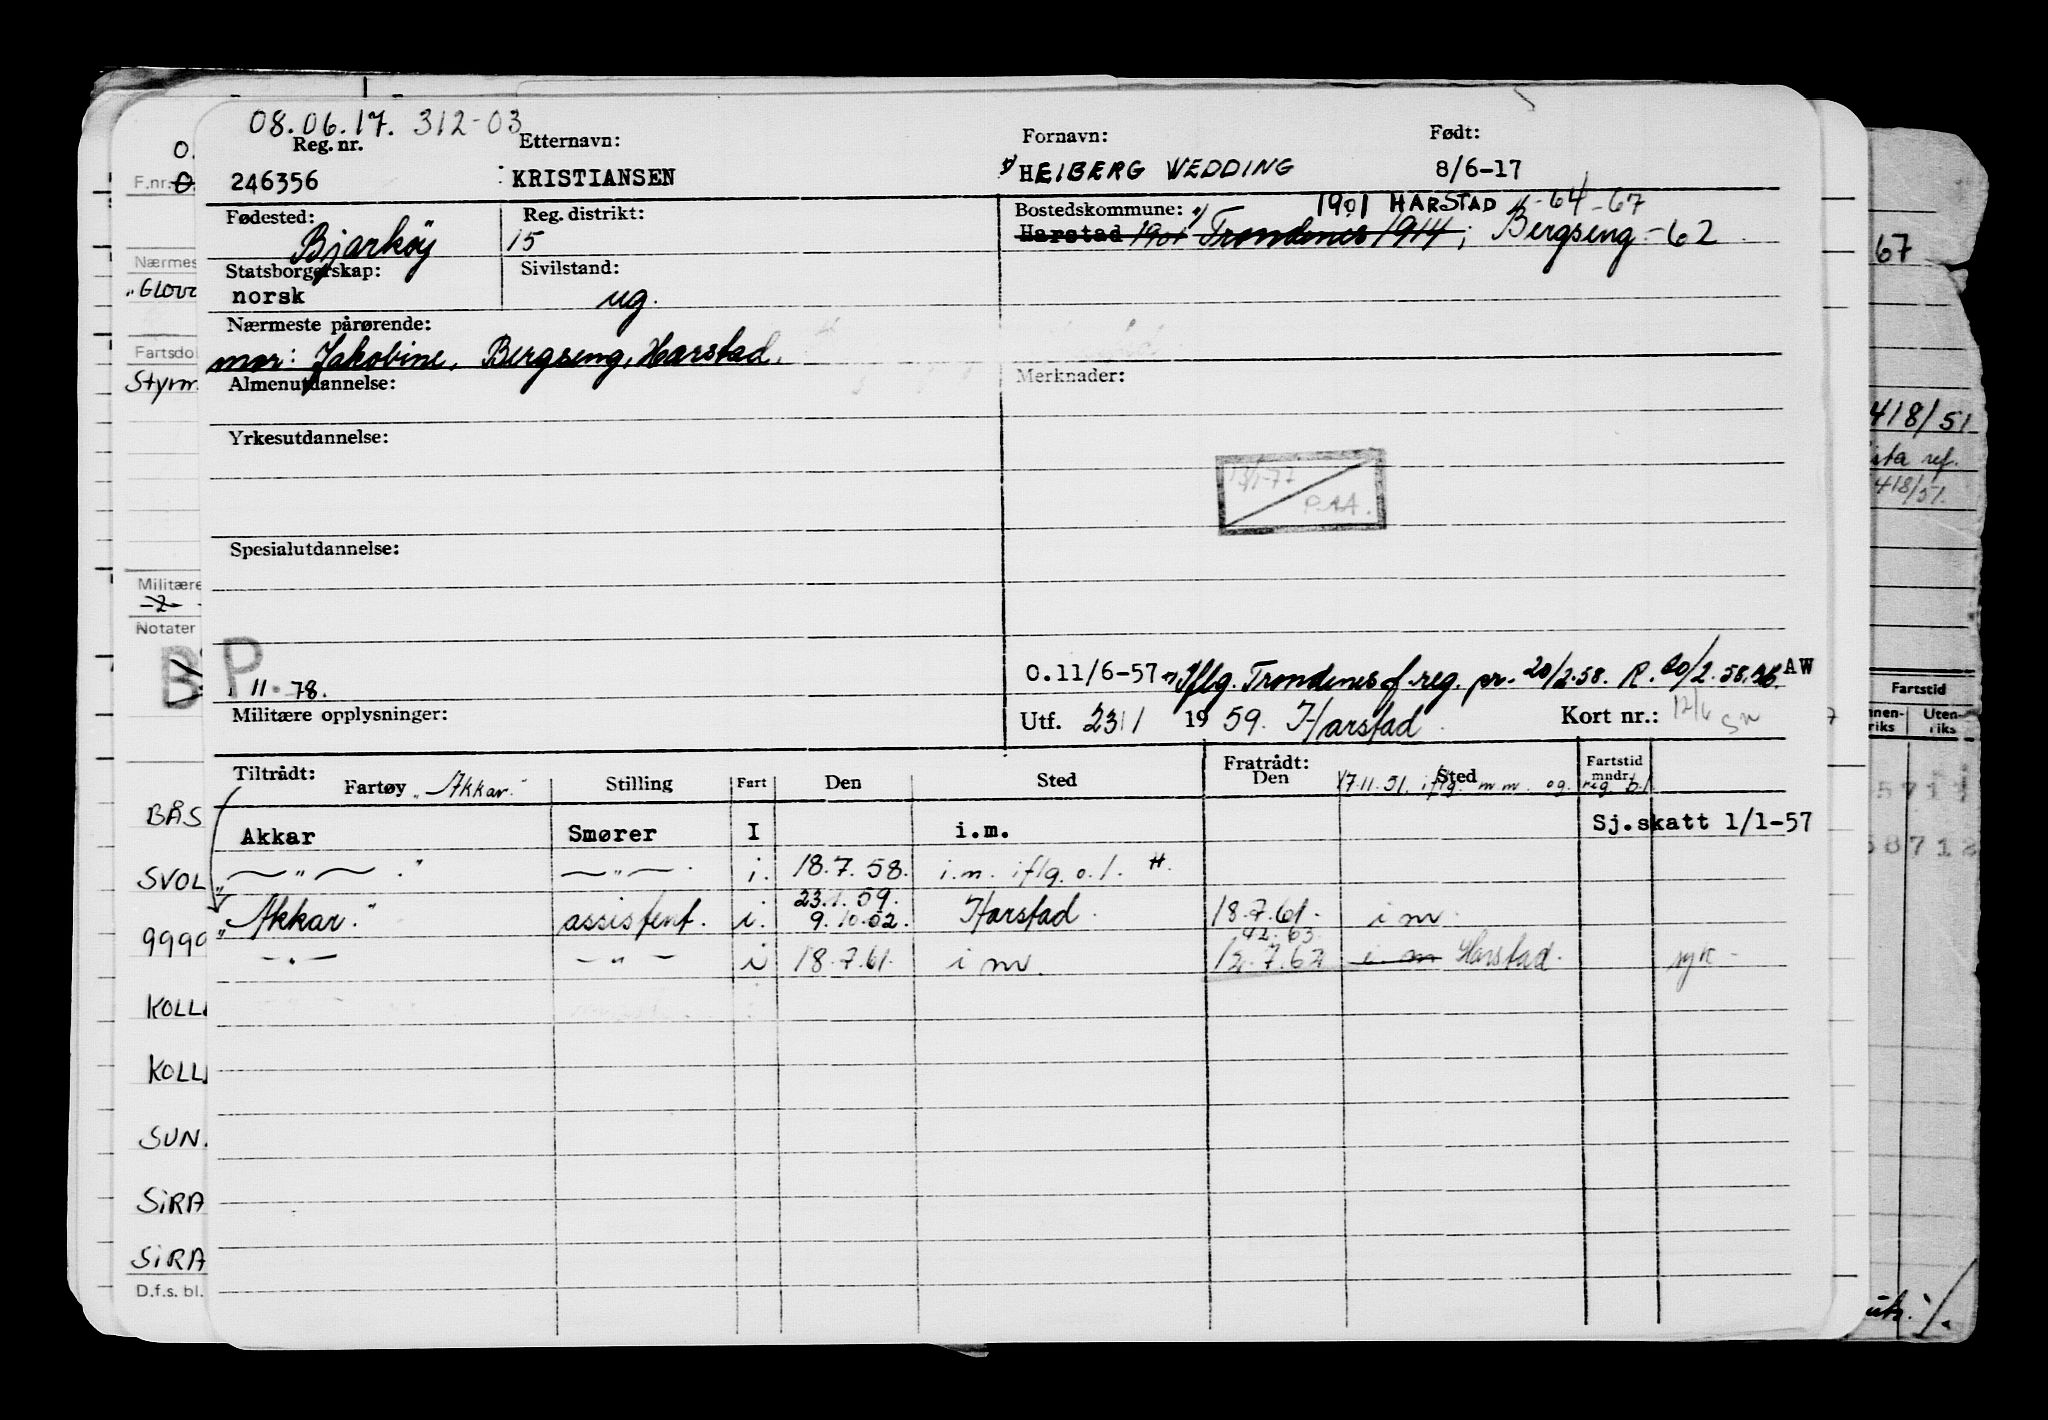 08.06.17. 312-03
Reg. nr. Etternavn: Fornavn: Født:
246356 KRISTIANSEN HEIBERG WEDDING 8/6-17
Fødested: Reg. distrikt: Bostedskommune: 1901 HARSTAD -64-67
Bjarkøy 15 Harstad 1901 Trondenes 1914; Bergseng -62
Statsborgerskap: Sivilstand:
norsk ug.
Nærmeste pårørende:
mor: Jakobine, Bergseng, Harstad.
Almenutdannelse: Merknader:
Yrkesutdannelse:
13/1-77
P.AA.
Spesialutdannelse:
B.P.
11-78.
O.11/6-57 Iflg. Trondenes f.reg. pr. 20/2.58. R. 20/2.58. AW
Militære opplysninger: Utf. 23/1 1959. Harstad. Kort nr.: 12/6
Tiltrådt: Fratrådt: Fartstid
Fartøy "Akkar" Stilling Fart Den Sted Den Sted mndr.
17.11.51. iflg. m m. og. reg. bl.
Akkar Smører I i.m. Sj.skatt 1/1-57
— " — " — " — i. 18.7.58. i.m. iflg. o.l. H.
23.1.59.
"Akkar." assistent. i. 9.10.02. Harstad. 18.7.61. i m.
— " — — " — i 18.7.61. i m. 12.7.62 i m Harstad. syk-
F.nr.
Nærmes
Fartsdo
Styrm.
Militære
-2-
Notater
BÅS
SVOL
9990
KOLL
KOLL
SUN.
SIRA
SIRA
D.f.s. bl.
67
418/51
ista ref.
418/51.
Fartstid
nnen-riks Uten-riks
5711
8712
utr.